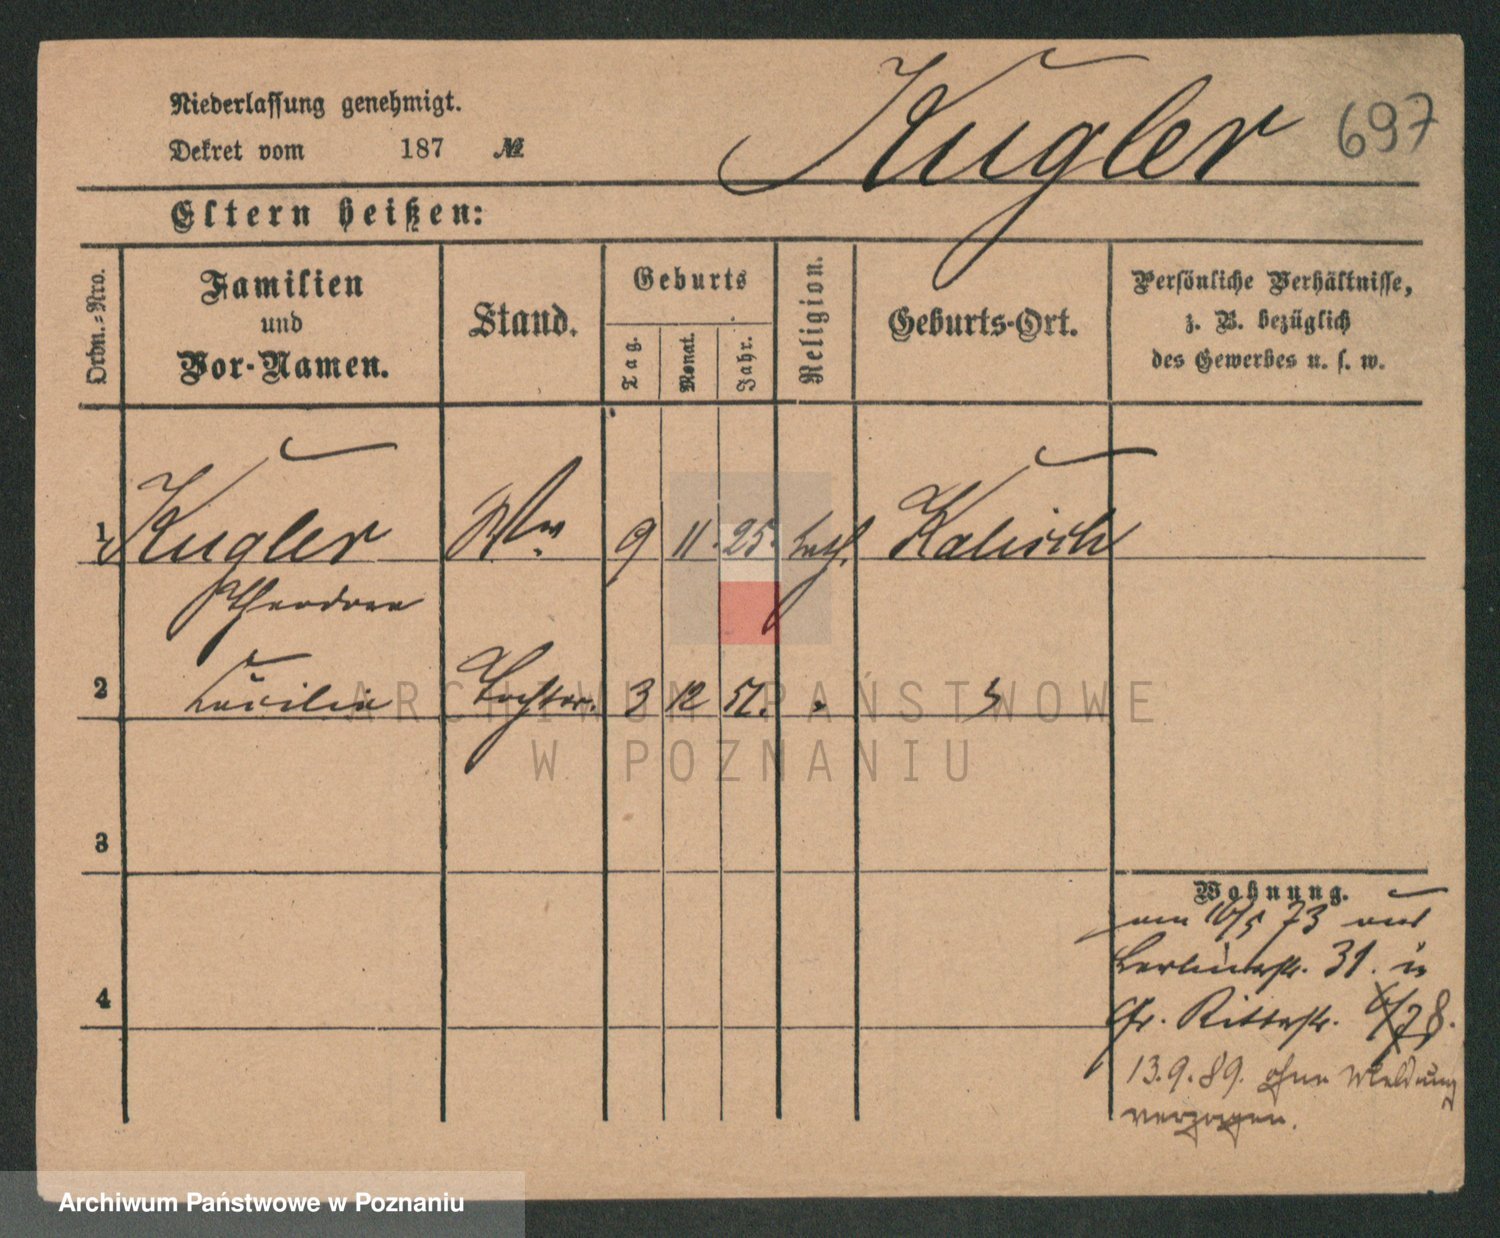 Kugler 697
Niederlassung genehmigt.
Dekret vom 187 №
Eltern heißen:
Ordn.-Nro.
Familien
und
Vor-Namen.
Stand.
Geburts
Tag.
Monat.
Jahr.
Religion.
Geburts-Ort.
Persönliche Verhältnisse,
z. B. bezüglich
des Gewerbes u. s. w.
1 Kugler Ww. 9 11. 25. kath. Kalisch
Theodora
2 Tochter. 3 12 51. "
3
Wohnung.
am 16/5 73 aus
Berlinerstr. 31. in
Gr. Ritterstr.
4
13.9.89. ohne Meldung
verzogen.
ARCHIWUM PAŃSTWOWE
W POZNANIU
Archiwum Państwowe w Poznaniu